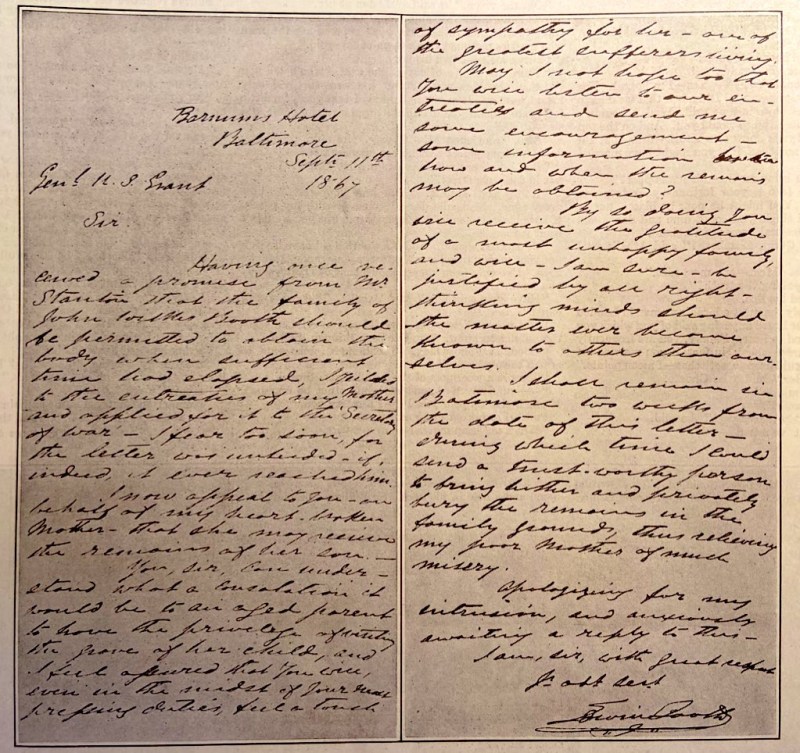 Barnums Hotel
Baltimore
Septr 11th
1867
Genl. U. S. Grant
Sir
Having once re-
ceived a promise from Mr
Stanton that the family of
John Wilkes Booth should
be permitted to obtain the
body when sufficient
time had elapsed, I yielded
to the entreaties of my Mother
and applied for it to the Secretary
of war – I fear too soon, for
the letter was unheeded – if,
indeed, it ever reached him.
I now appeal to you – on
behalf of my heart-broken
Mother – that she may receive
the remains of her son. –
You, sir, can under-
stand what a consolation it
would be to an aged parent
to have the privilege of visiting
the grave of her child, and
I feel assured that You will,
even in the midst of your most
pressing duties, feel a touch
of sympathy for her – one of
the greatest sufferers living.
May I not hope too that
You will listen to our en-
treaties and send me
some encouragement –
some information
how and when the remains
may be obtained?
By so doing You
will receive the gratitude
of a most unhappy family,
and will – I am sure – be
justified by all right-
thinking minds should
the matter ever become
known to others than our-
selves.
I shall remain in
Baltimore two weeks from
the date of this letter –
during which time I could
send a trust-worthy person
to bring hither and privately
bury the remains in the
family grounds, thus relieving
my poor Mother of much
misery.
Apologizing for my
intrusion, and anxiously
awaiting a reply to this –
I am, sir, with great respect
Yr obt sert
Edwin Booth